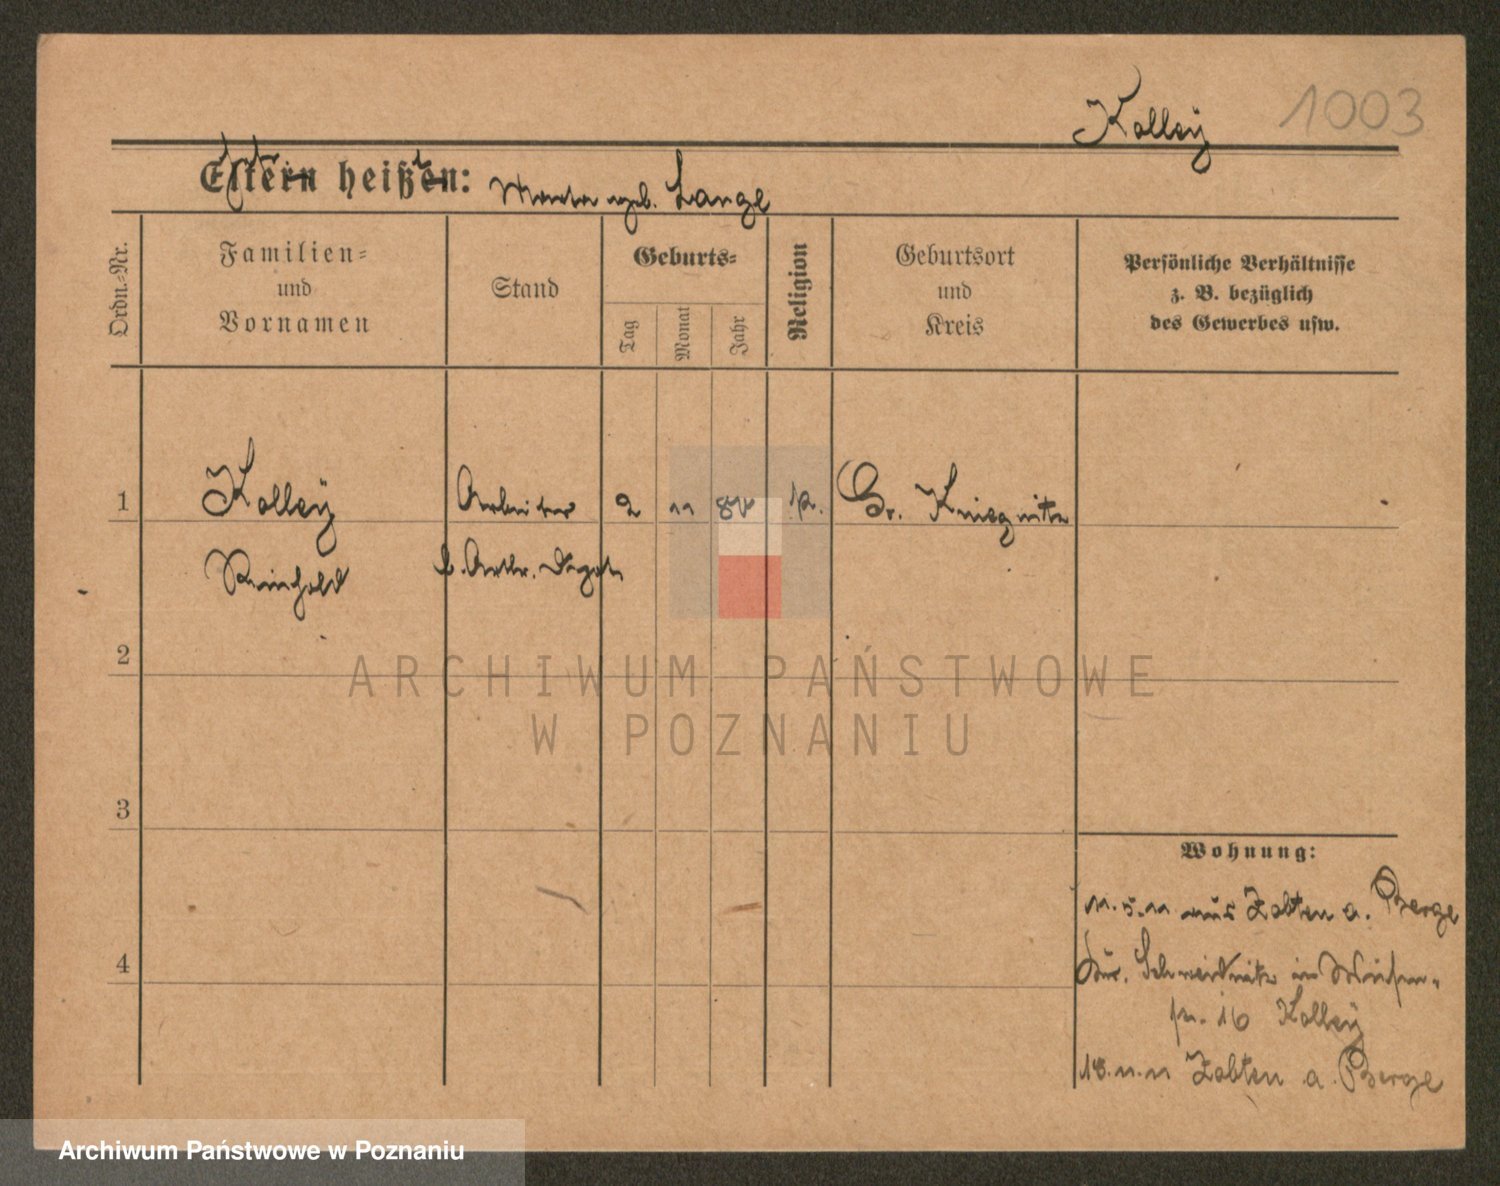 1003
Kolley
Eltern heißen: Marta geb. Lange
Ordn.-Nr.
Familien-
und
Vornamen
Stand
Geburts-
Tag
Monat
Jahr
Religion
Geburtsort
und
Kreis
Persönliche Verhältnisse
z. B. bezüglich
des Gewerbes usw.
1
Kolley Arbeiter 2 11 Gr. Kniegnitz
Reinhold
2
3
4
Wohnung:
11.5.11 aus Zobten a. Berge
Schweidnitz in
16 Kolley
18.11.11 Zobten a. Berge
ARCHIWUM PAŃSTWOWE
W POZNANIU
Archiwum Państwowe w Poznaniu